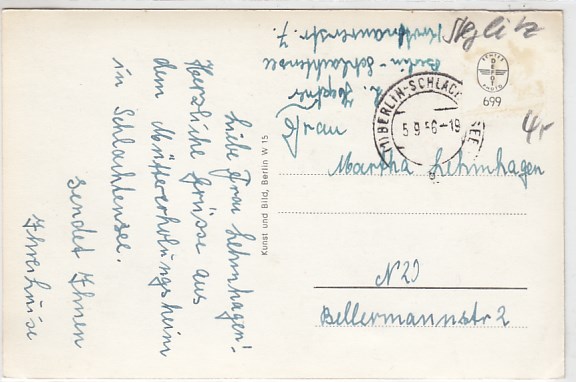 Liebe Frau Lehmhagen!
Herzliche Grüsse aus
dem Müttererholungsheim
in Schlachtensee.
sendet Ihnen
Ihre Luise
Kunst und Bild, Berlin W 15
Berlin-Schlachtensee
7.
Steglitz
BERLIN-SCHLACHTENSEE
5.9.56-19
699
4r
Frau
Martha Lehmhagen
N 20
Bellermannstr 2